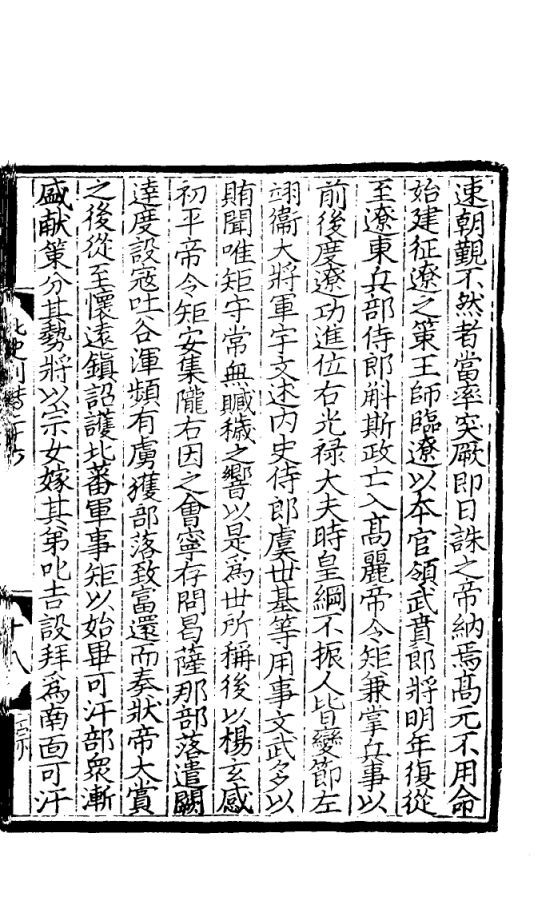 速朝覲不然者當率突厥即日誅之帝納焉髙元不用命
始建征遼之策王師臨遼以本官領武賁郎將明年復從
至遼東兵部侍郎斛斯政亡入髙麗帝令矩兼掌兵事以
前後度遼功進位右光禄大夫時皇綱不振人皆變節左
翊衞大將軍宇文述内史侍郎虞世基等用事文武多以
賄聞唯矩守常無贓穢之響以是爲世所稱後以楊玄感
初平帝令矩安集隴右因之會寧存問曷薩那部落遣闕
達度設寇吐谷渾頻有虜獲部落致富還而奏狀帝大賞
之後從至懷遠鎮詔護北蕃軍事矩以始畢可汗部衆漸
盛献策分其勢將以宗女嫁其弟叱吉設拜爲南面可汗
北史列傳二十六
十八